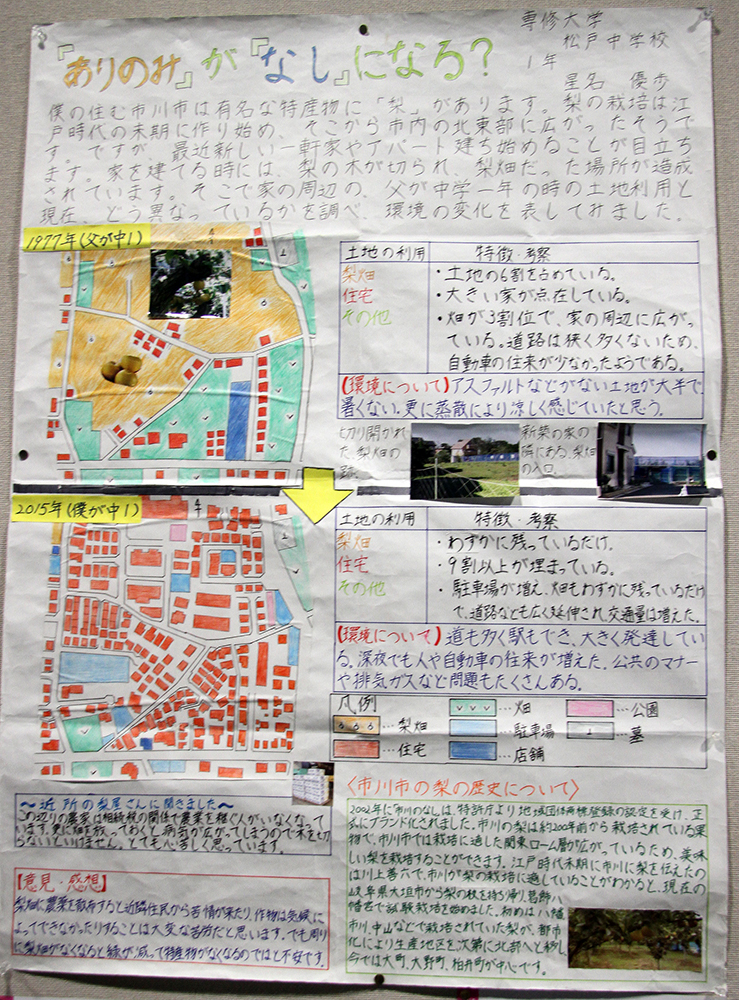 専修大学
松戸中学校
1年
星名 優歩
『ありのみ』が『なし』になる?
僕の住む市川市は有名な特産物に「梨」があります。梨の栽培は江
戸時代の末期に作り始め、そこから市内の北東部に広がったそうで
す。ですが、最近新しい一軒家やアパート建ち始めることが目立ち
ます。家を建てる時には、梨の木が切られ、梨畑だった場所が造成
されています。そこで家の周辺の、父が中学一年の時の土地利用と
現在、どう異なっているかを調べ、環境の変化を表してみました。
1977年(父が中1)
土地の利用 特徴・考察
梨畑 ・土地の6割を占めている。
住宅 ・大きい家が点在している。
その他 ・畑が3割位で、家の周辺に広がっ
ている。道路は狭く多くないため、
自動車の往来が少なかったようである。
【環境について】アスファルトなどがない土地が大半で、
暑くない。更に蒸散により涼しく感じていたと思う。
切り開かれ
た、梨畑の
跡
新築の家の
隣にある、梨畑
の入口
2015年(僕が中1)
土地の利用 特徴・考察
梨畑 ・わずかに残っているだけ。
住宅 ・9割以上が埋まっている。
その他 ・駐車場が増え、畑もわずかに残っているだけ
で、道路なども広く延伸され、交通量は増えた。
【環境について】道も多く駅もでき、大きく発達してい
る。深夜でも人や自動車の往来が増えた。公共のマナー
や排気ガスなど問題もたくさんある。
凡例
…梨畑 …畑 …公園
…住宅 …駐車場 …墓
…店舗
〜近所の梨屋さんに聞きました〜
この辺りの農家は相続税の関係で農業を継ぐ人がいなくなって
います。更に畑を放っておくと、病気が広がってしまうので木を切ら
ないといけません。とても心苦しく思っています。
【意見・感想】
梨畑に農薬を散布すると近隣住民から苦情が来たり、作物は気候に
よってできなかったりすることは大変な苦労だと思います。でも周り
に梨畑がなくなると緑が減って特産物がなくなるのではと不安です。
〈市川市の梨の歴史について〉
2002年に「市川のなし」は、特許庁より地域団体商標登録の認定を受け、正
式にブランド化されました。市川の梨は約200年前から栽培されている果
物で、市川市では栽培に適した関東ローム層が広がっているため、美味
しい梨を栽培することができます。江戸時代末期に市川に梨を伝えたの
は川上善六で、市川が梨の栽培に適していることがわかると、現在の
岐阜県大垣市から梨の枝を持ち帰り、葛飾八
幡宮で試験栽培を始めました。初めは八幡、
市川、中山などで栽培されていた梨が、都市
化により生産地区を次第に北部へと移し、
今では大町、大野町、柏井町が中心です。